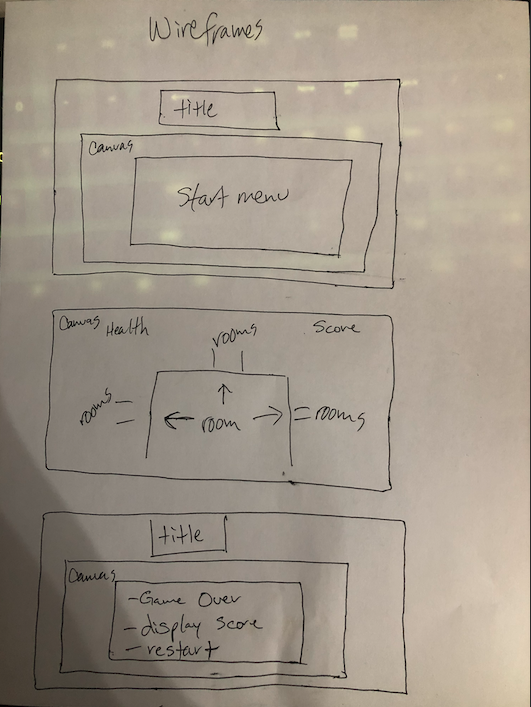 Wireframes
title
Canvas
Start menu
Canvas Health Score
rooms
rooms
room
rooms
title
Canvas
- Game Over
- display Score
- restart